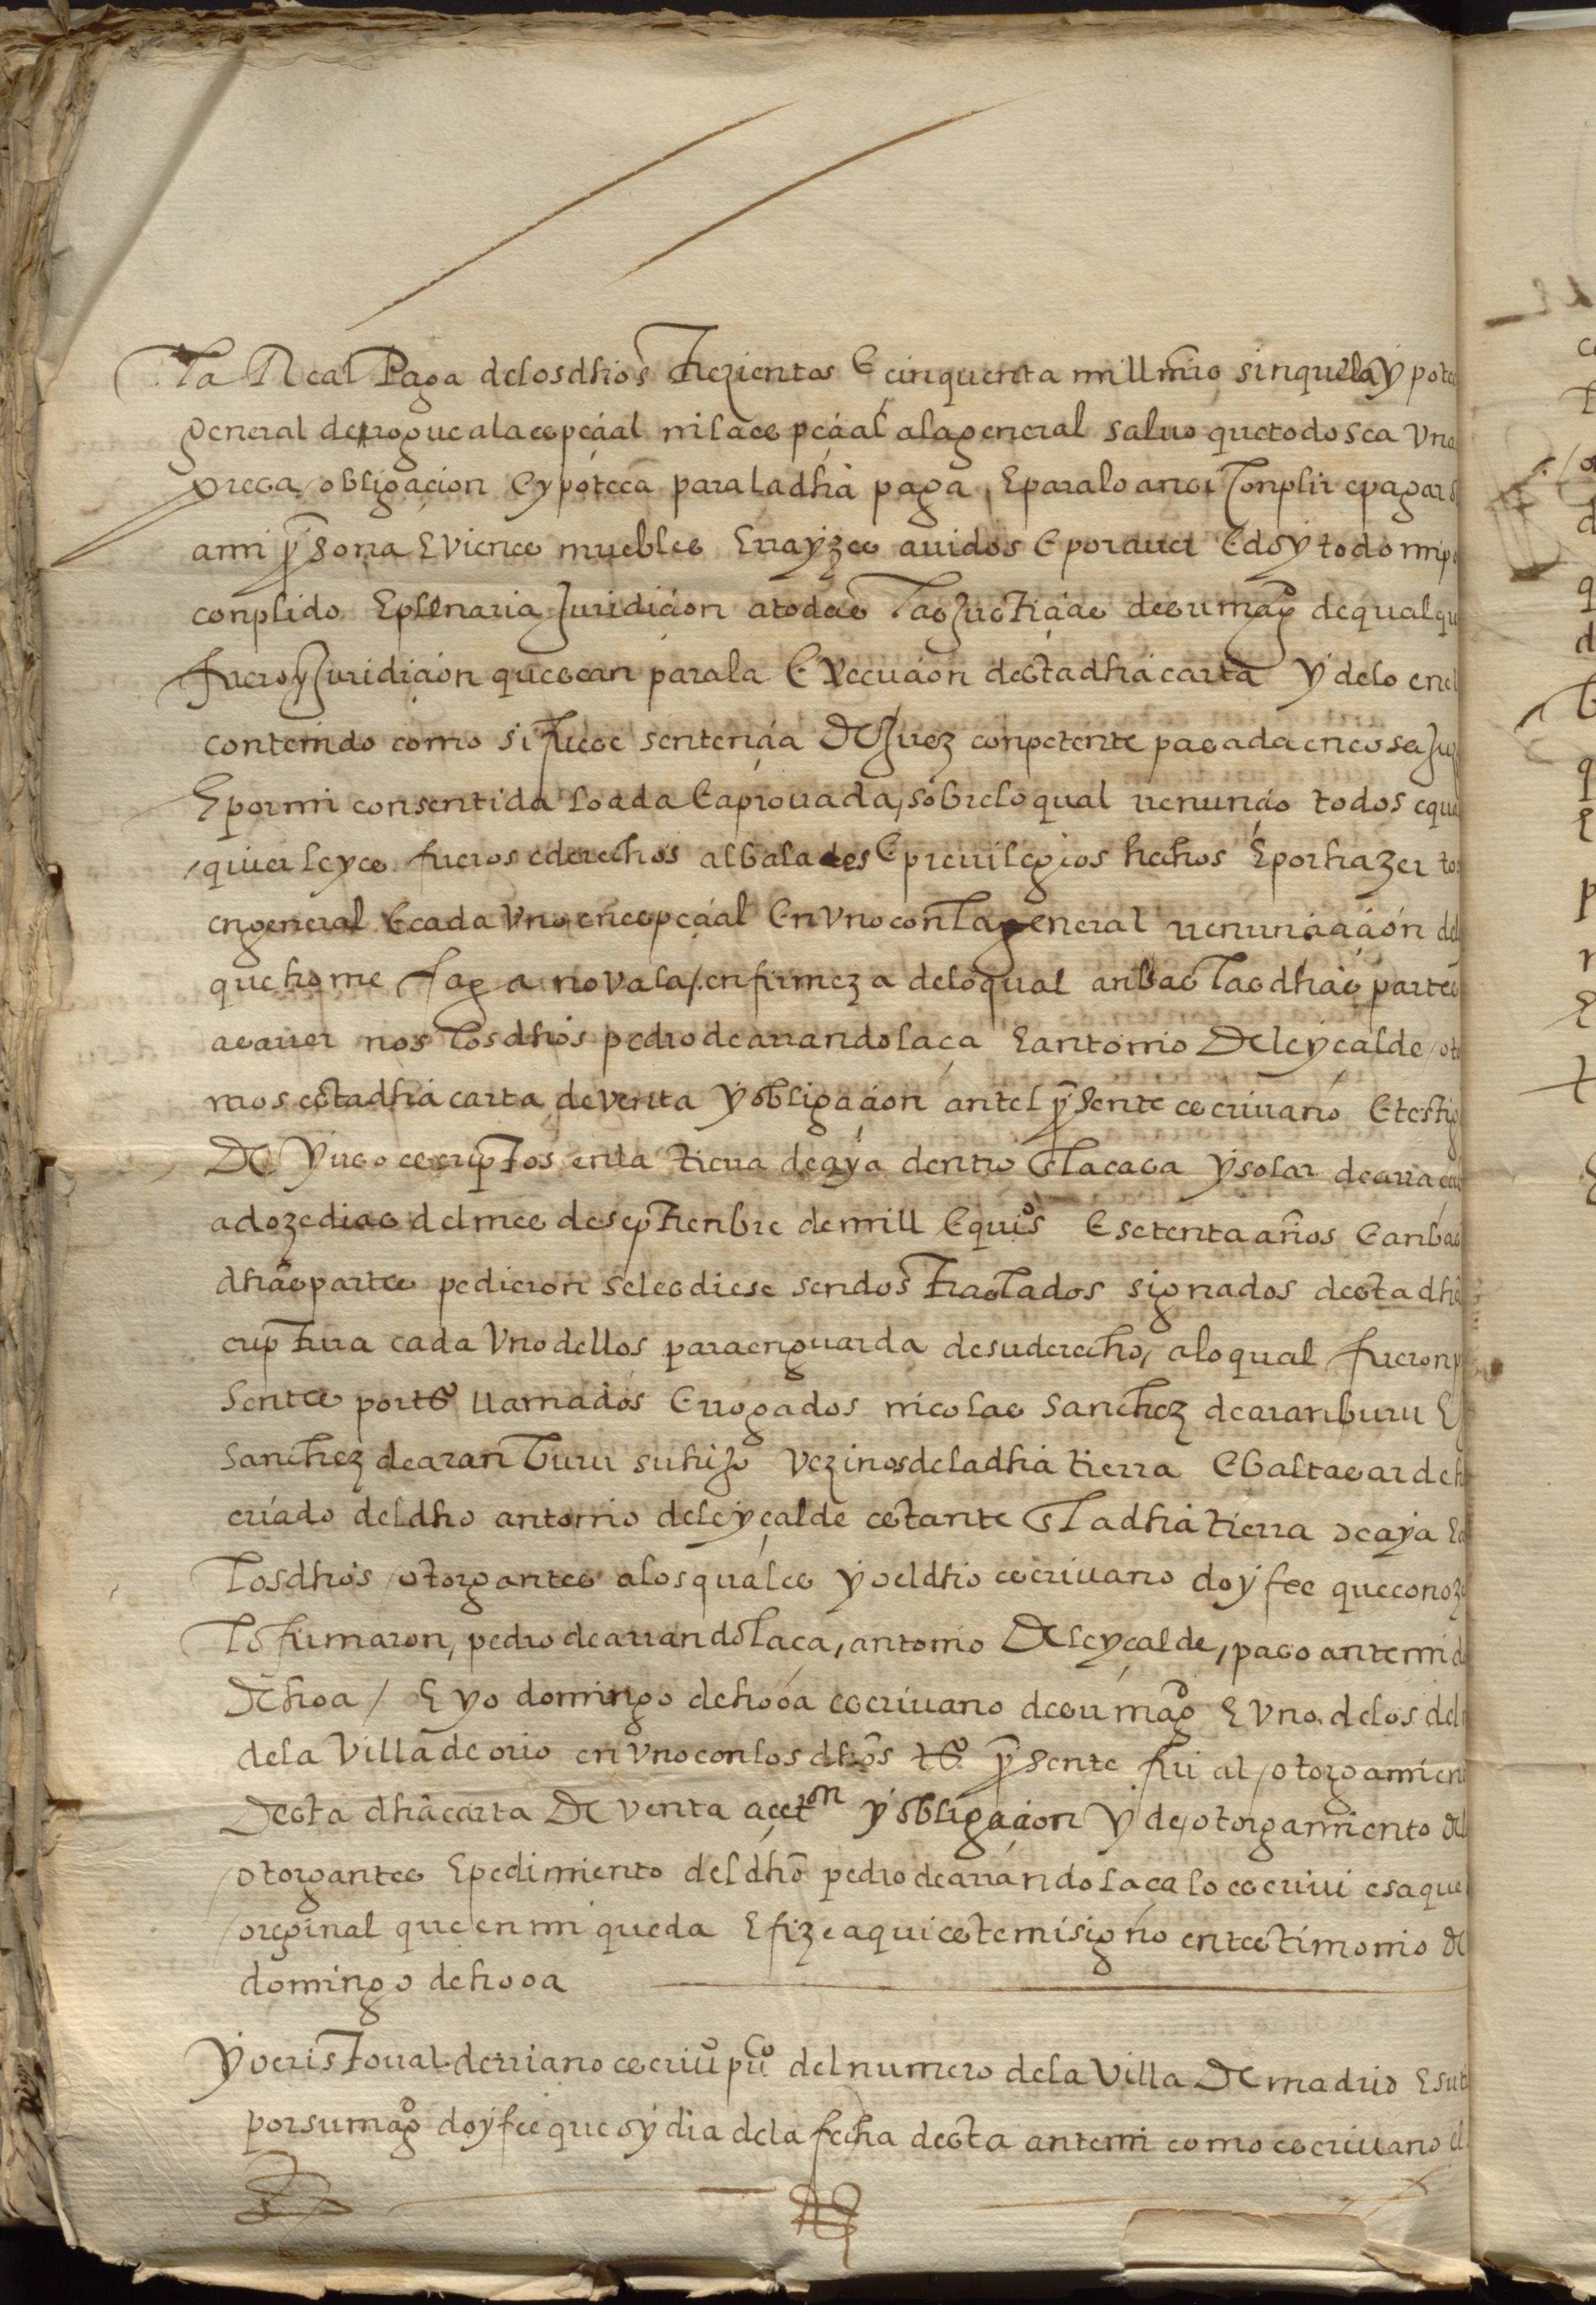 la Real Paga delos dhos trezientos E cinquenta mill mrs sin que la ypote
general derrogue ala especial ni la especial ala general saluo que todo sea vna
presa obligaçion E ypoteca para la dha paga, E para lo ansi conplir e pagar
a mi psona E vienes muebles E rrayzes auidos E por auer E doy todo mi po
conplido E plenaria Juridicion a todas las Justicias de su magd de qualqu
fuero y Juridicion que sean para la Execucion desta dha carta y de lo en el
contenido como si fuese sentencia De Juez conpetente pasada en cosa Juz
E por mi consentida loada E aprouada, sobre lo qual rrenuncio todos e qua
quier leyes fueros e derechos albalades E preuilegios hechos E por hazer to
en general E cada vno en especial En vno con la general rrenunciacion del
que home faga no vala / en firmeza de lo qual anbas las dhas partes
a sauer nos los dhos pedro de arrandolaça E antonio De leyçalde / oto
mos esta dha carta de venta y obligacion antel psente escriuano E testig
De yuso escriptos en la tierra de aya dentro En la casa y solar de
a doze dias del mes de septienbre de mill E quis E setenta años E anbas
dhas partes pedieron se les diese sendos traslados signados desta dha
criptura cada vno dellos para en guarda de su derecho, a lo qual fueron p
sentes por ts llamados E rrogados nicolas sanchez de aranburu E
sanchez de aranburu su hijo vezinos de la dha tierra E baltasar de
criado del dho antonio de leyçalde estante En la dha tierra de aya E
los dhos otorgantes a los quales yo el dho escriuano doy fee que conoz
lo firmaron, pedro de arrandolaça, antonio De leyçalde, paso ante mi do
De hoa / E yo domingo de hooa escriuano de su magd E vno de los del
de la Villa de orio en vno con los dhos ts psente fui al otorgamien
Desta dha carta De venta açeton y obligaçion y de otorgamiento de
otorgantes E pedimiento del dho pedro de arrandolaça lo escriui e saque
oreginal que en mi queda E fize aqui este mi signo en testimonio de
domingo de hooa
yo cristoual de rriano escriuo puco del numero de la Villa De madrid E su
por su magd doy fee que oy dia de la fecha desta ante mi como escriuano el